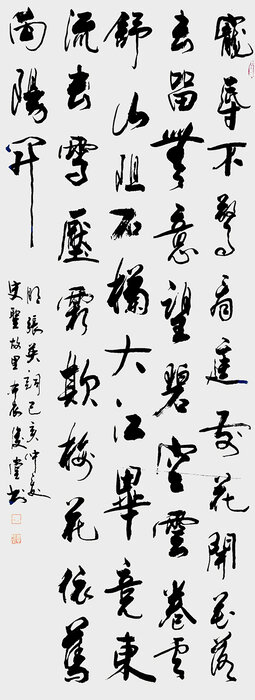 寵辱不驚看庭前花開花落
去留無意望碧空雲卷雲
舒山阻石攔大江畢竟東
流去雪壓霜欺梅花依舊
向陽開
明張英詞己亥仲夏
史聖故里堂書